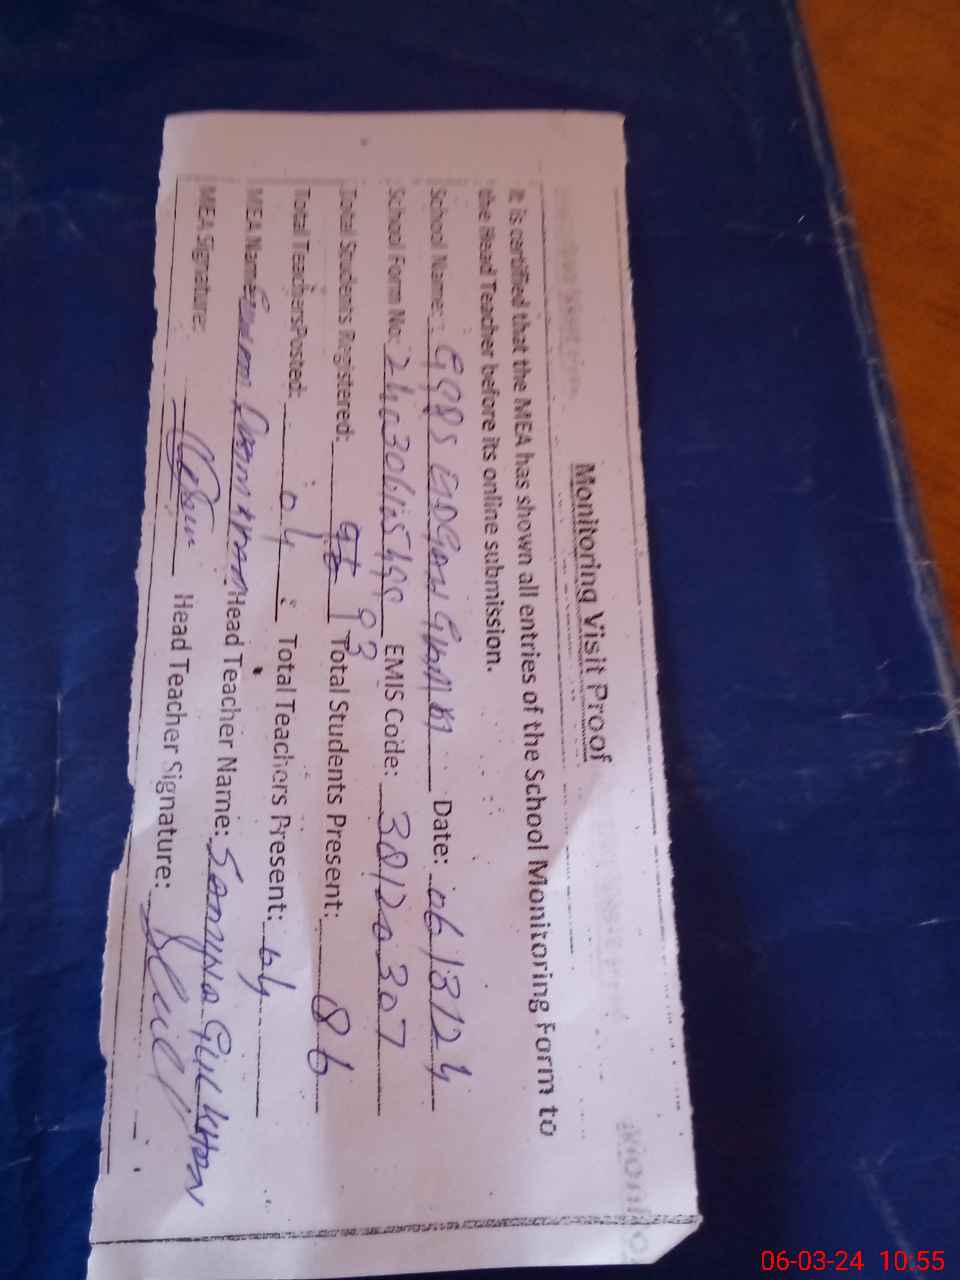 Monitoring Visit Proof
It is certified that the MEA has shown all entries of the School Monitoring Form to
the Head Teacher before its online submission.
School Name: GGPS Date: 06/3/24
School Form No: EMIS Code: 38120307
Total Students Registered: 93 Total Students Present: 86
Total TeachersPosted: 04 Total Teachers Present: 04
MEA Name: Head Teacher Name: Samina Gul Khan
MEA Signature: Head Teacher Signature:
06-03-24 10:55